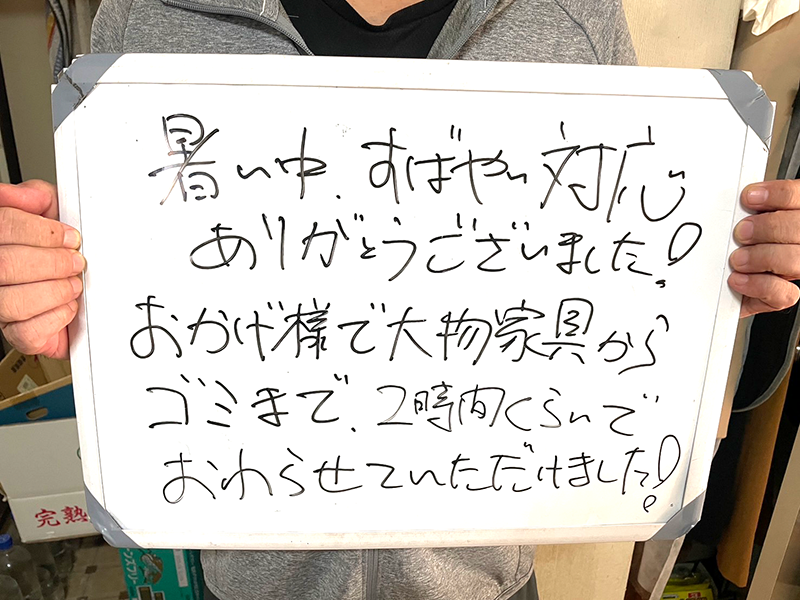 暑い中、すばやい対応
ありがとうございました!
おかげ様で大物家具から
ゴミまで、2時間くらいで
おわらせていただけました!
完熟
ンスプリー